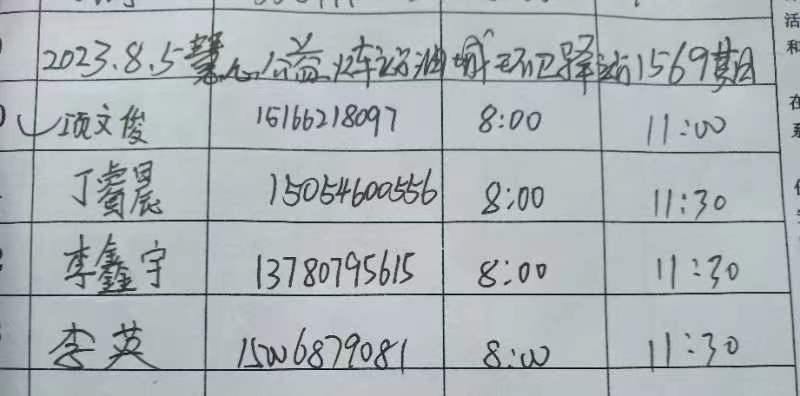 2023.8.5慧心公益
项文俊 15166218097 8:00 11:00
丁睿晨 15054600556 8:00 11:30
李鑫宇 13780795615 8:00 11:30
李英 15006879081 8:00 11:30
活
和
在
系